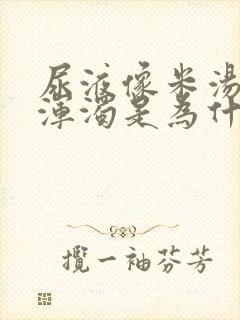 尿液像米湯
渾濁是為什
攬一袖芬芳